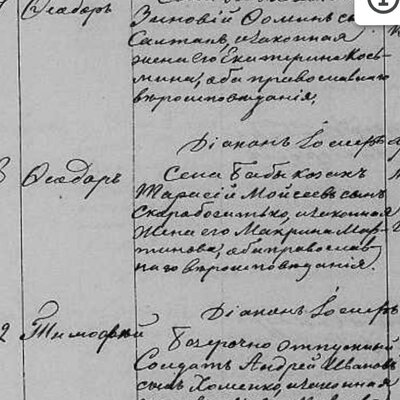 Ѳеодоръ
Зиновій Ѳоминъ сынъ
Салтанъ, и законная
жена его Екатерина Кось-
мина, оба православнаго
вѣроисповѣданія.
Діаконъ Іосифъ
Ѳеодоръ
Села Бабы козакъ
Тарасій Моисеевъ сынъ
и законная
жена его Макрина Мар-
тинова, оба православ-
наго вѣроисповѣданія.
Діаконъ Іосифъ
2
Тимоѳей
Безсрочно отпускный
Солдатъ Андрей Ивановъ
сынъ Хоменко, и законная